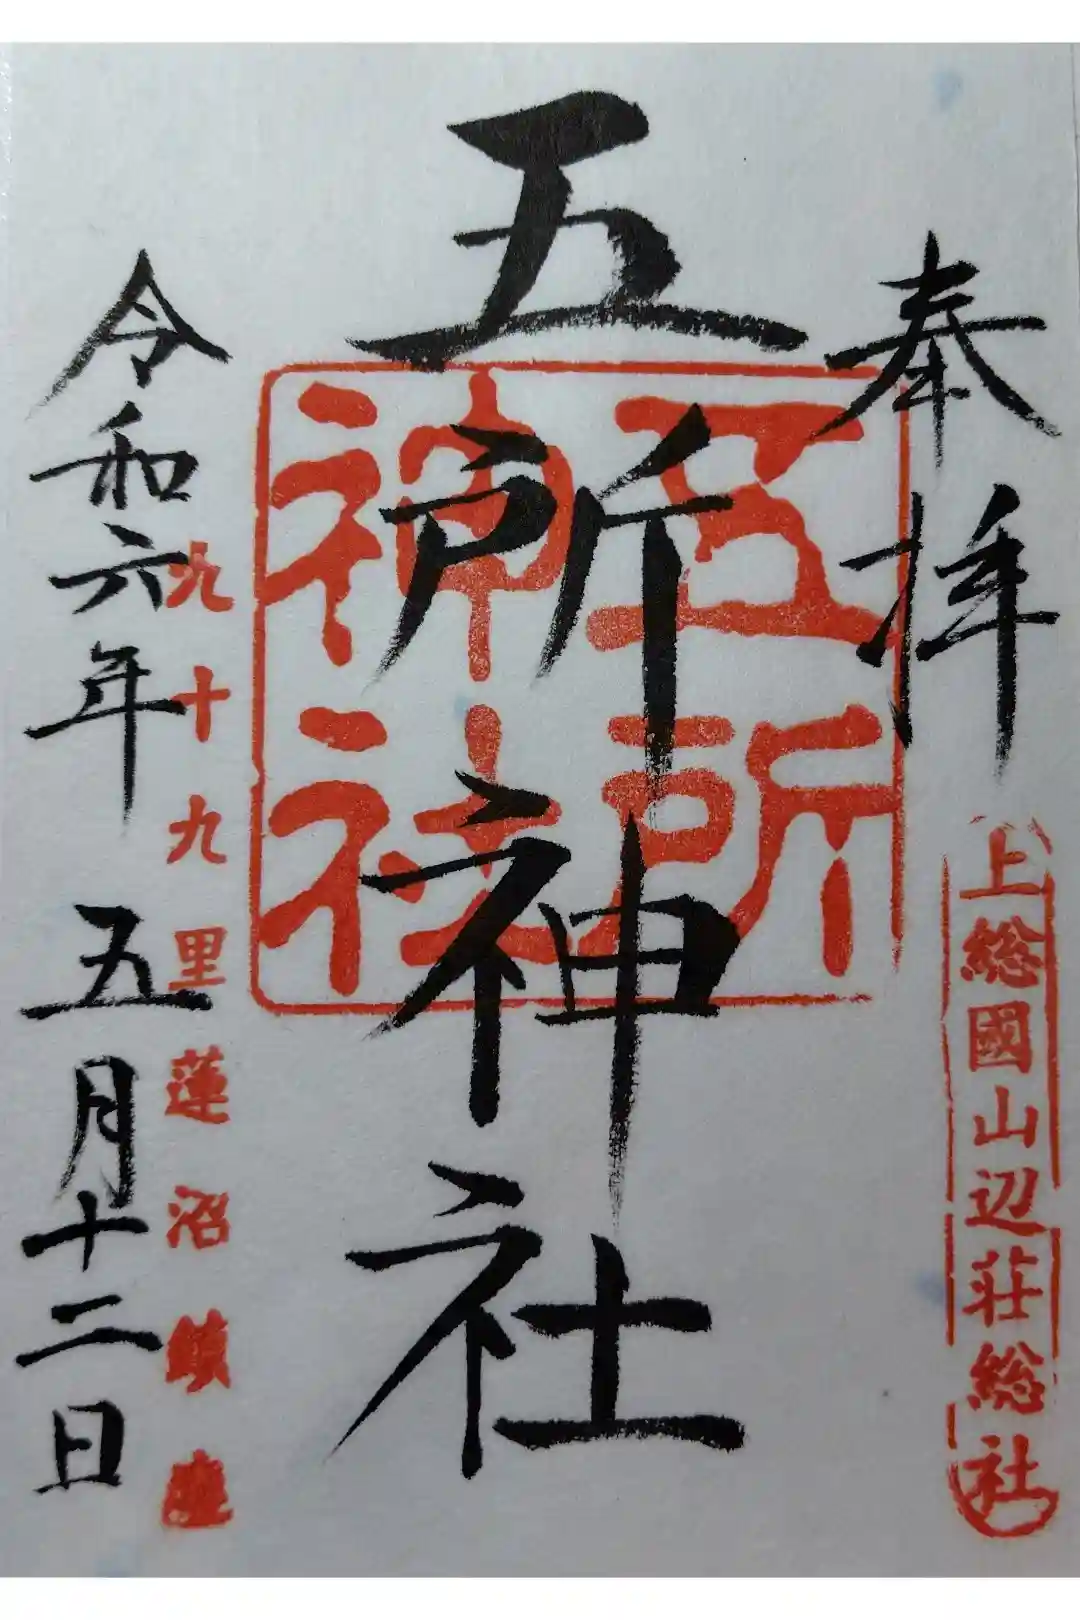 奉拝
上総國山辺荘総社
五所神社
五所
神社
九十九里蓮沼鎮座
令和六年五月十二日